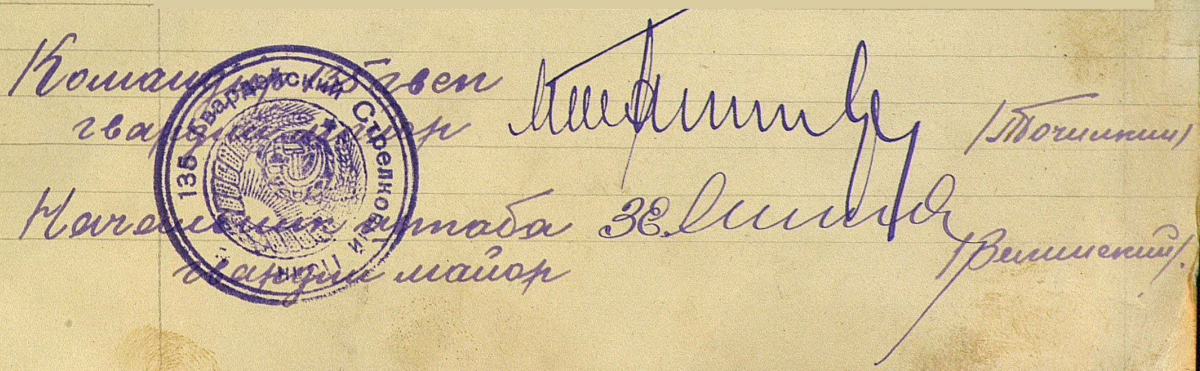 Командир 135 гвсп
гвардии майор /Точилкин/
Начальник штаба
гвардии майор
135 Гвардейский Стрелковый Полк